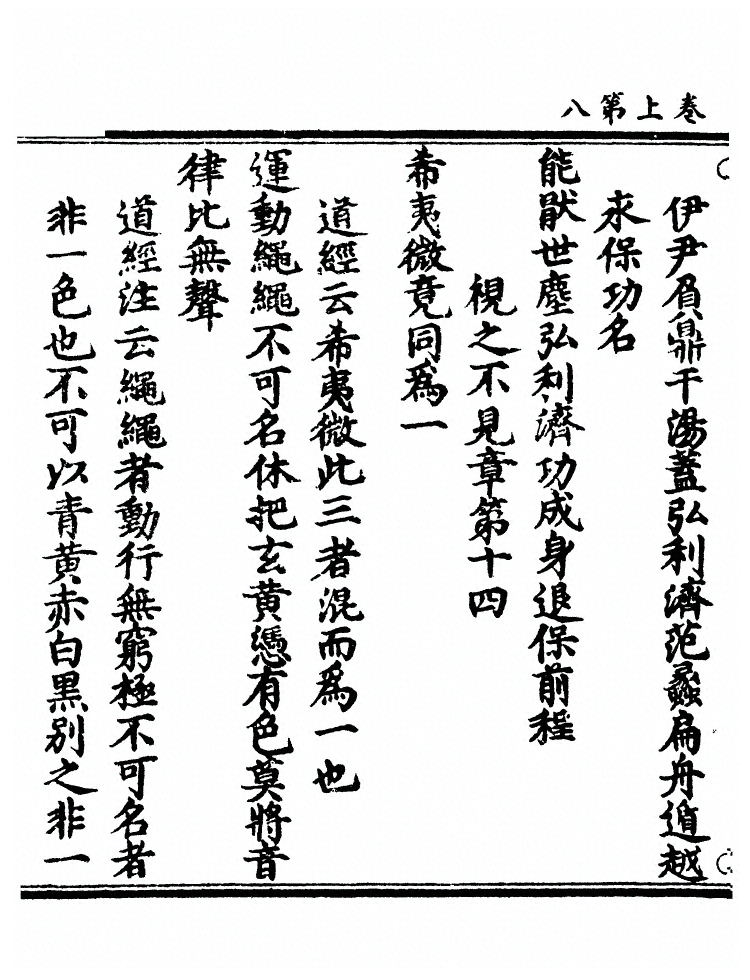 卷上第八
伊尹負鼎干湯蓋弘利濟范蠡扁舟遁越
求保功名
能猒世塵弘利濟功成身退保前程
視之不見章第十四
希夷微竟同爲一
道經云希夷微此三者混而爲一也
運動繩繩不可名休把玄黃憑有色莫將音
律比無聲
道經注云繩繩者動行無窮極不可名者
非一色也不可以青黃赤白黑別之非一